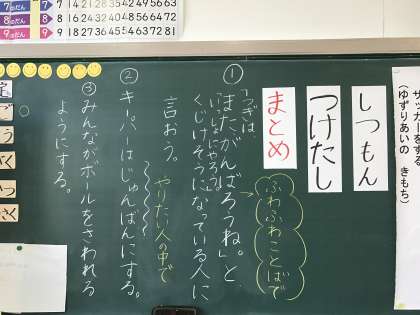 サッカーをする
（ゆずりあいの　きもち）
しつもん
つけたし
まとめ
ふわふわことばで
①「つぎは
またがんばろうね。」と、
「いっしょにやろう」
くじけそうになっている人に
言おう。
やりたい人の中で
②キーパーはじゅんばんにする。
③みんながボールをさわれる
ようにする。
7のだん 7 7 14 21 28 35 42 49 56 63
8のだん 8 8 16 24 32 40 48 56 64 72
9のだん 9 9 18 27 36 45 54 63 72 81